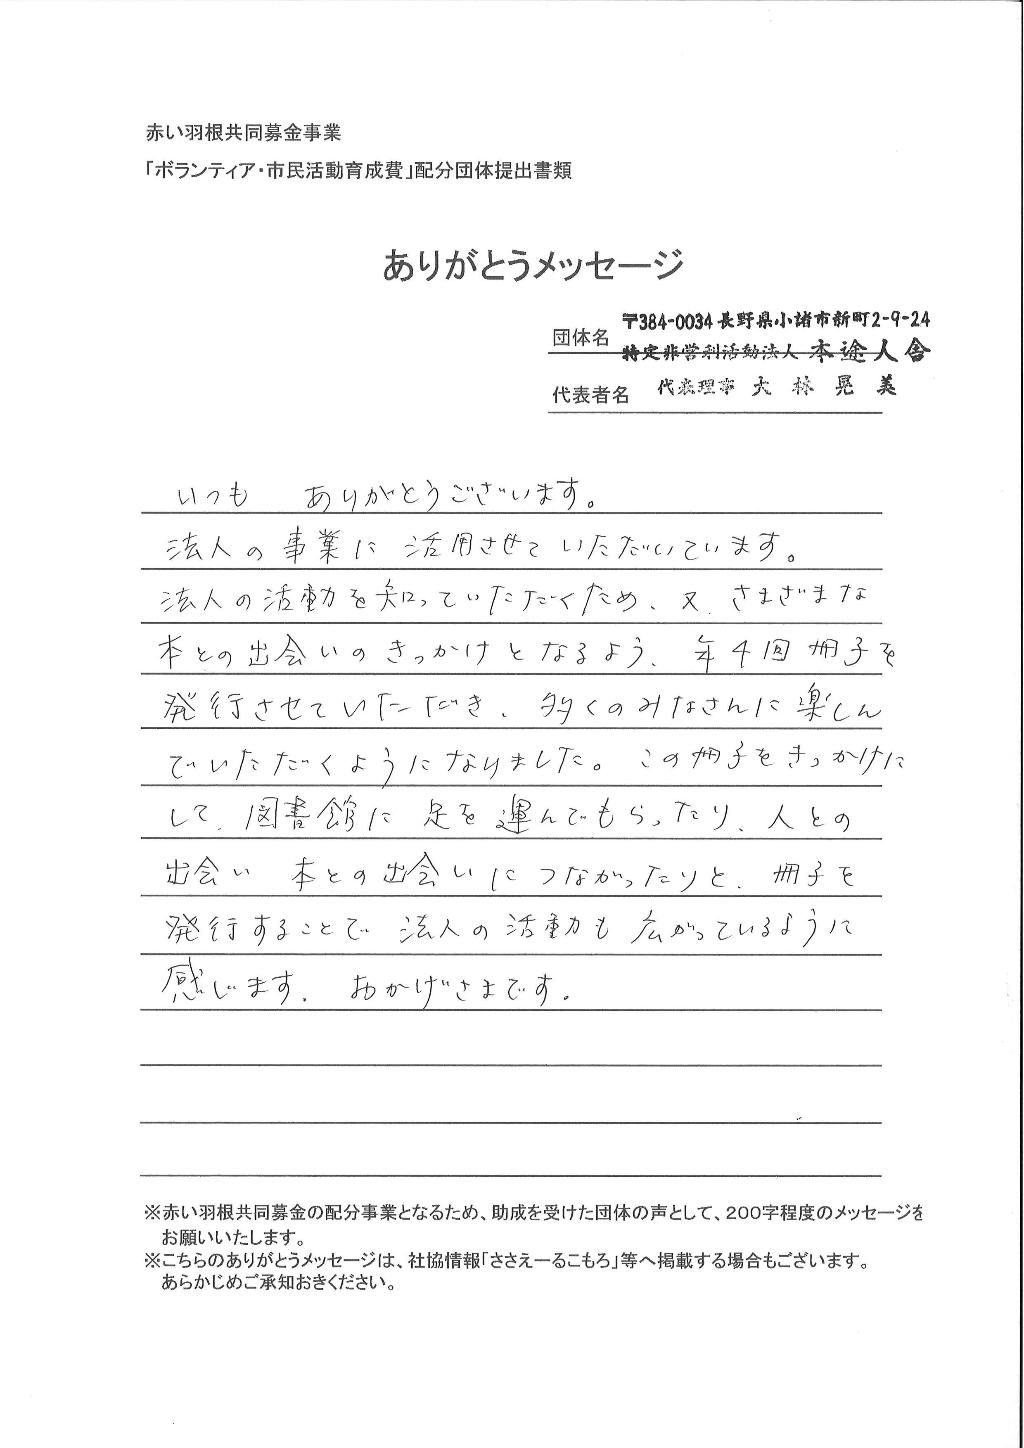 赤い羽根共同募金事業
「ボランティア・市民活動育成費」配分団体提出書類
ありがとうメッセージ
〒384-0034 長野県小諸市新町2-9-24
団体名 特定非営利活動法人 本途人舎
代表者名 代表理事 大林晃美
いつも ありがとうございます。
法人の事業に活用させていただいています。
法人の活動を知っていただくため、又、さまざまな
本との出会いのきっかけとなるよう、年4回冊子を
発行させていただき、多くのみなさんに楽しん
でいただくようになりました。この冊子をきっかけに
して、図書館に足を運んでもらったり、人との
出会い 本との出会いにつながったりと、冊子を
発行することで 法人の活動も広がっているように
感じます。 おかげさまです。
※赤い羽根共同募金の配分事業となるため、助成を受けた団体の声として、200字程度のメッセージを
お願いいたします。
※こちらのありがとうメッセージは、社協情報「ささえーるこもろ」等へ掲載する場合もございます。
あらかじめご承知おきください。